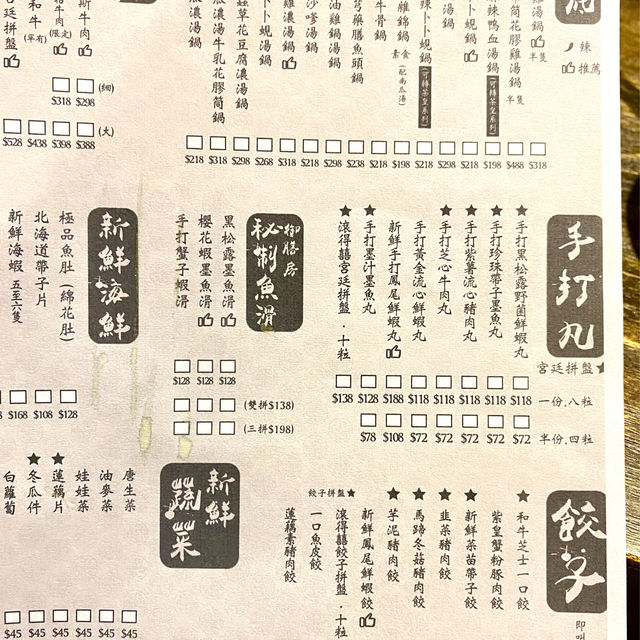 辣
推薦
雞湯鍋 半隻
筒花膠雞湯鍋 半隻
辣鴨血湯鍋 (可轉茶皇系列)
湯鍋
辣卜卜蜆鍋 (可轉茶皇系列)
雜錦鍋 素食 (配南瓜湯)
牛骨鍋
芎藥膳魚頭鍋
油雞鍋湯鍋
沙嗲湯鍋
雞濃湯鍋
卜卜蜆湯鍋
蟲草花豆腐濃湯鍋
濃湯牛乳花膠筒鍋
濃湯鍋
$218 $318 $298 $268 $318 $218 $298 $238 $218 $198 $218 $298 $218 $198 $488 $318
斯牛肉
牛肉 (限定)
和牛 (罕有)
宮廷拼盤
$318 $298 (細)
$528 $438 $398 $388 (大)
手打丸
宮廷拼盤★
★手打黑松露野菌鮮蝦丸
★手打珍珠帶子墨魚丸
★手打紫薯流心豬肉丸
★手打芝心牛肉丸
手打黃金流心鮮蝦丸
新鮮手打鳳尾鮮蝦丸
★手打墨汁墨魚丸
★滾得囍宮廷拼盤．十粒
$138 $128 $188 $118 $118 $118 $118 $118 一份.八粒
$78 $108 $72 $72 $72 $72 $72 半份.四粒
御膳房
秘制魚滑
黑松露墨魚滑
櫻花蝦墨魚滑
手打蟹子蝦滑
$128 $128 $128
(雙拼$138)
(三拼$198)
新鮮海鮮
極品魚肚 (綿花肚)
北海道帶子片
新鮮海蝦 五至六隻
$168 $108 $128
餃子
即叫
餃子拼盤★
★和牛芝士一口餃
紫皇蟹粉豚肉餃
★新鮮菜苗帶子餃
★韭菜豬肉餃
★馬蹄冬菇豬肉餃
★芋泥豬肉餃
新鮮鳳尾鮮蝦餃
滾得囍餃子拼盤．十粒
一口魚皮餃
蓮藕素豬肉餃
新鮮
蔬菜
唐生菜
油麥菜
娃娃菜
★蓮藕片
★冬瓜件
白蘿蔔
$45 $45 $45 $45 $45 $45